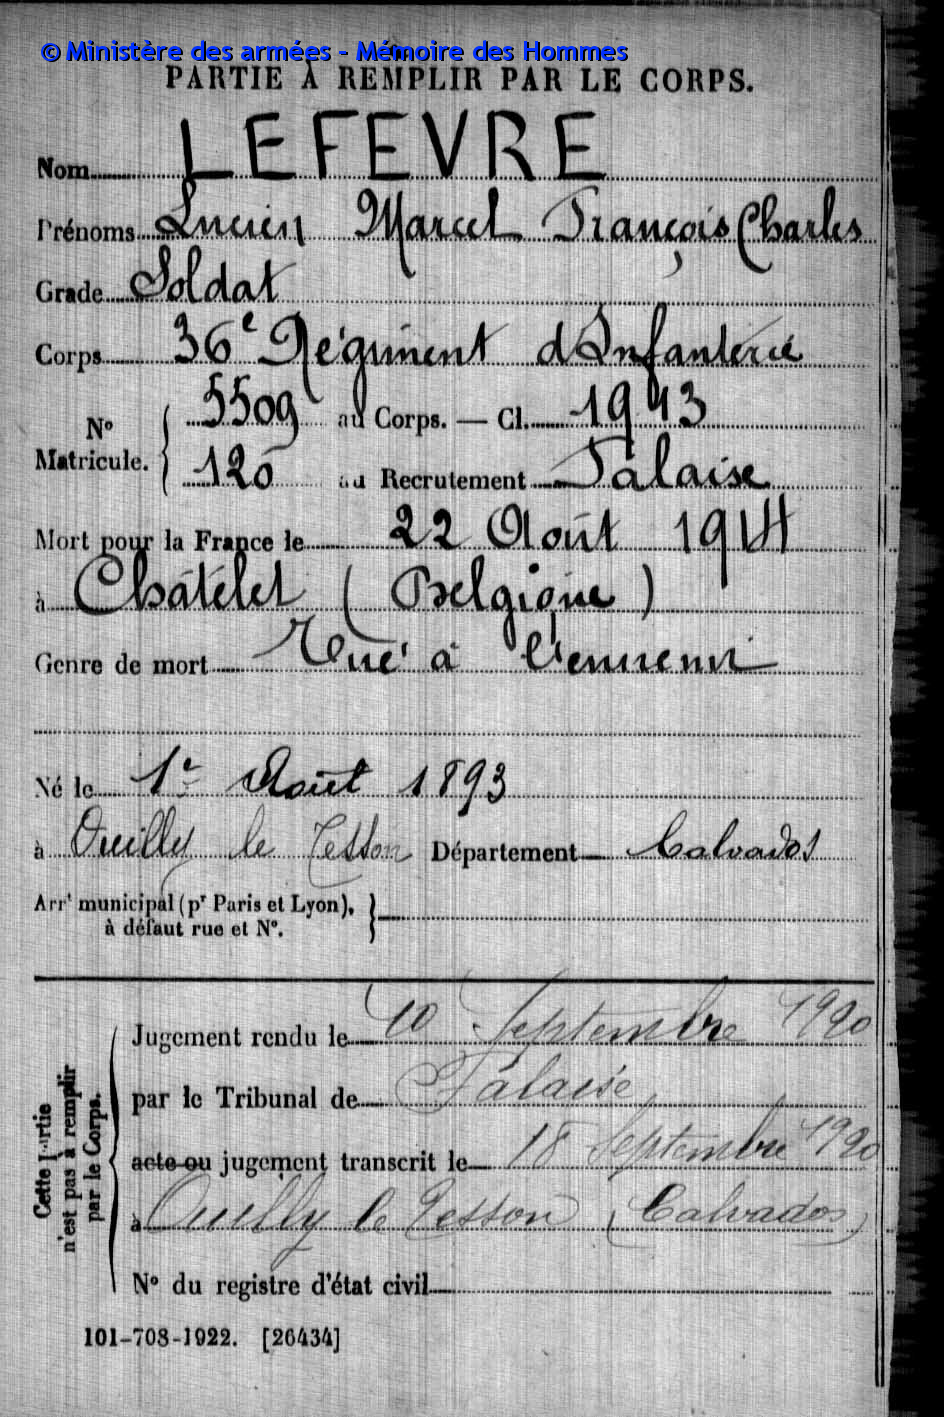 © Ministère des armées - Mémoire des Hommes
PARTIE À REMPLIR PAR LE CORPS.
Nom LEFEVRE
Prénoms Lucien Marcel François Charles
Grade Soldat
Corps 36e Régiment d'Infanterie
N° Matricule. { 5509 au Corps. — Cl. 1913
120 au Recrutement Falaise
Mort pour la France le 22 Août 1914
à Châtelet (Belgique)
Genre de mort Tué à l'ennemi
Né le 1er Août 1893
à Ouilly le Tesson Département Calvados
Arrt municipal (pr Paris et Lyon),
à défaut rue et N°.
Cette partie
n'est pas à remplir
par le Corps.
Jugement rendu le 10 Septembre 1920
par le Tribunal de Falaise
acte ou jugement transcrit le 18 Septembre 1920
à Ouilly le Tesson (Calvados)
N° du registre d'état civil
101-708-1922. [26434]